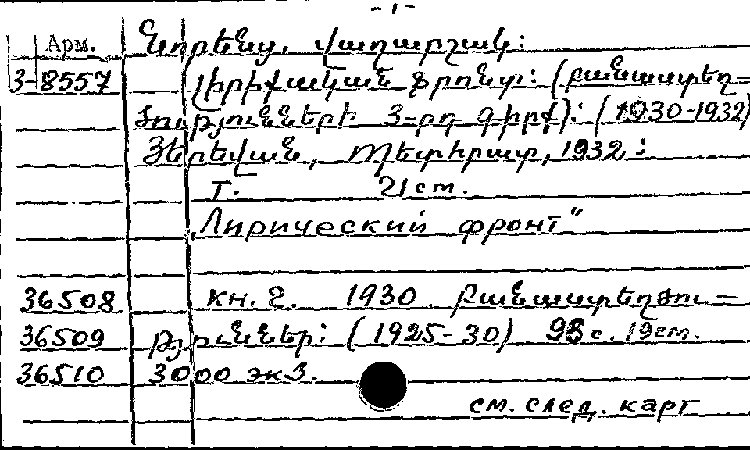 -1-
Арм. Նորենց, Վաղարշակ:
3-8557 Լիրիքական ֆրոնտ: (բանաստեղ-
ծությունների 3-րդ գիրք): (1930-1932)
Յերեվան, Պետհրատ, 1932:
Т. 21 см.
"Лирический фронт"
36508 кн. 2. 1930 Բանաստեղծու-
36509 թյուններ: (1925-30) 98 с. 19см.
36510 3000 экз.
см. след. карт